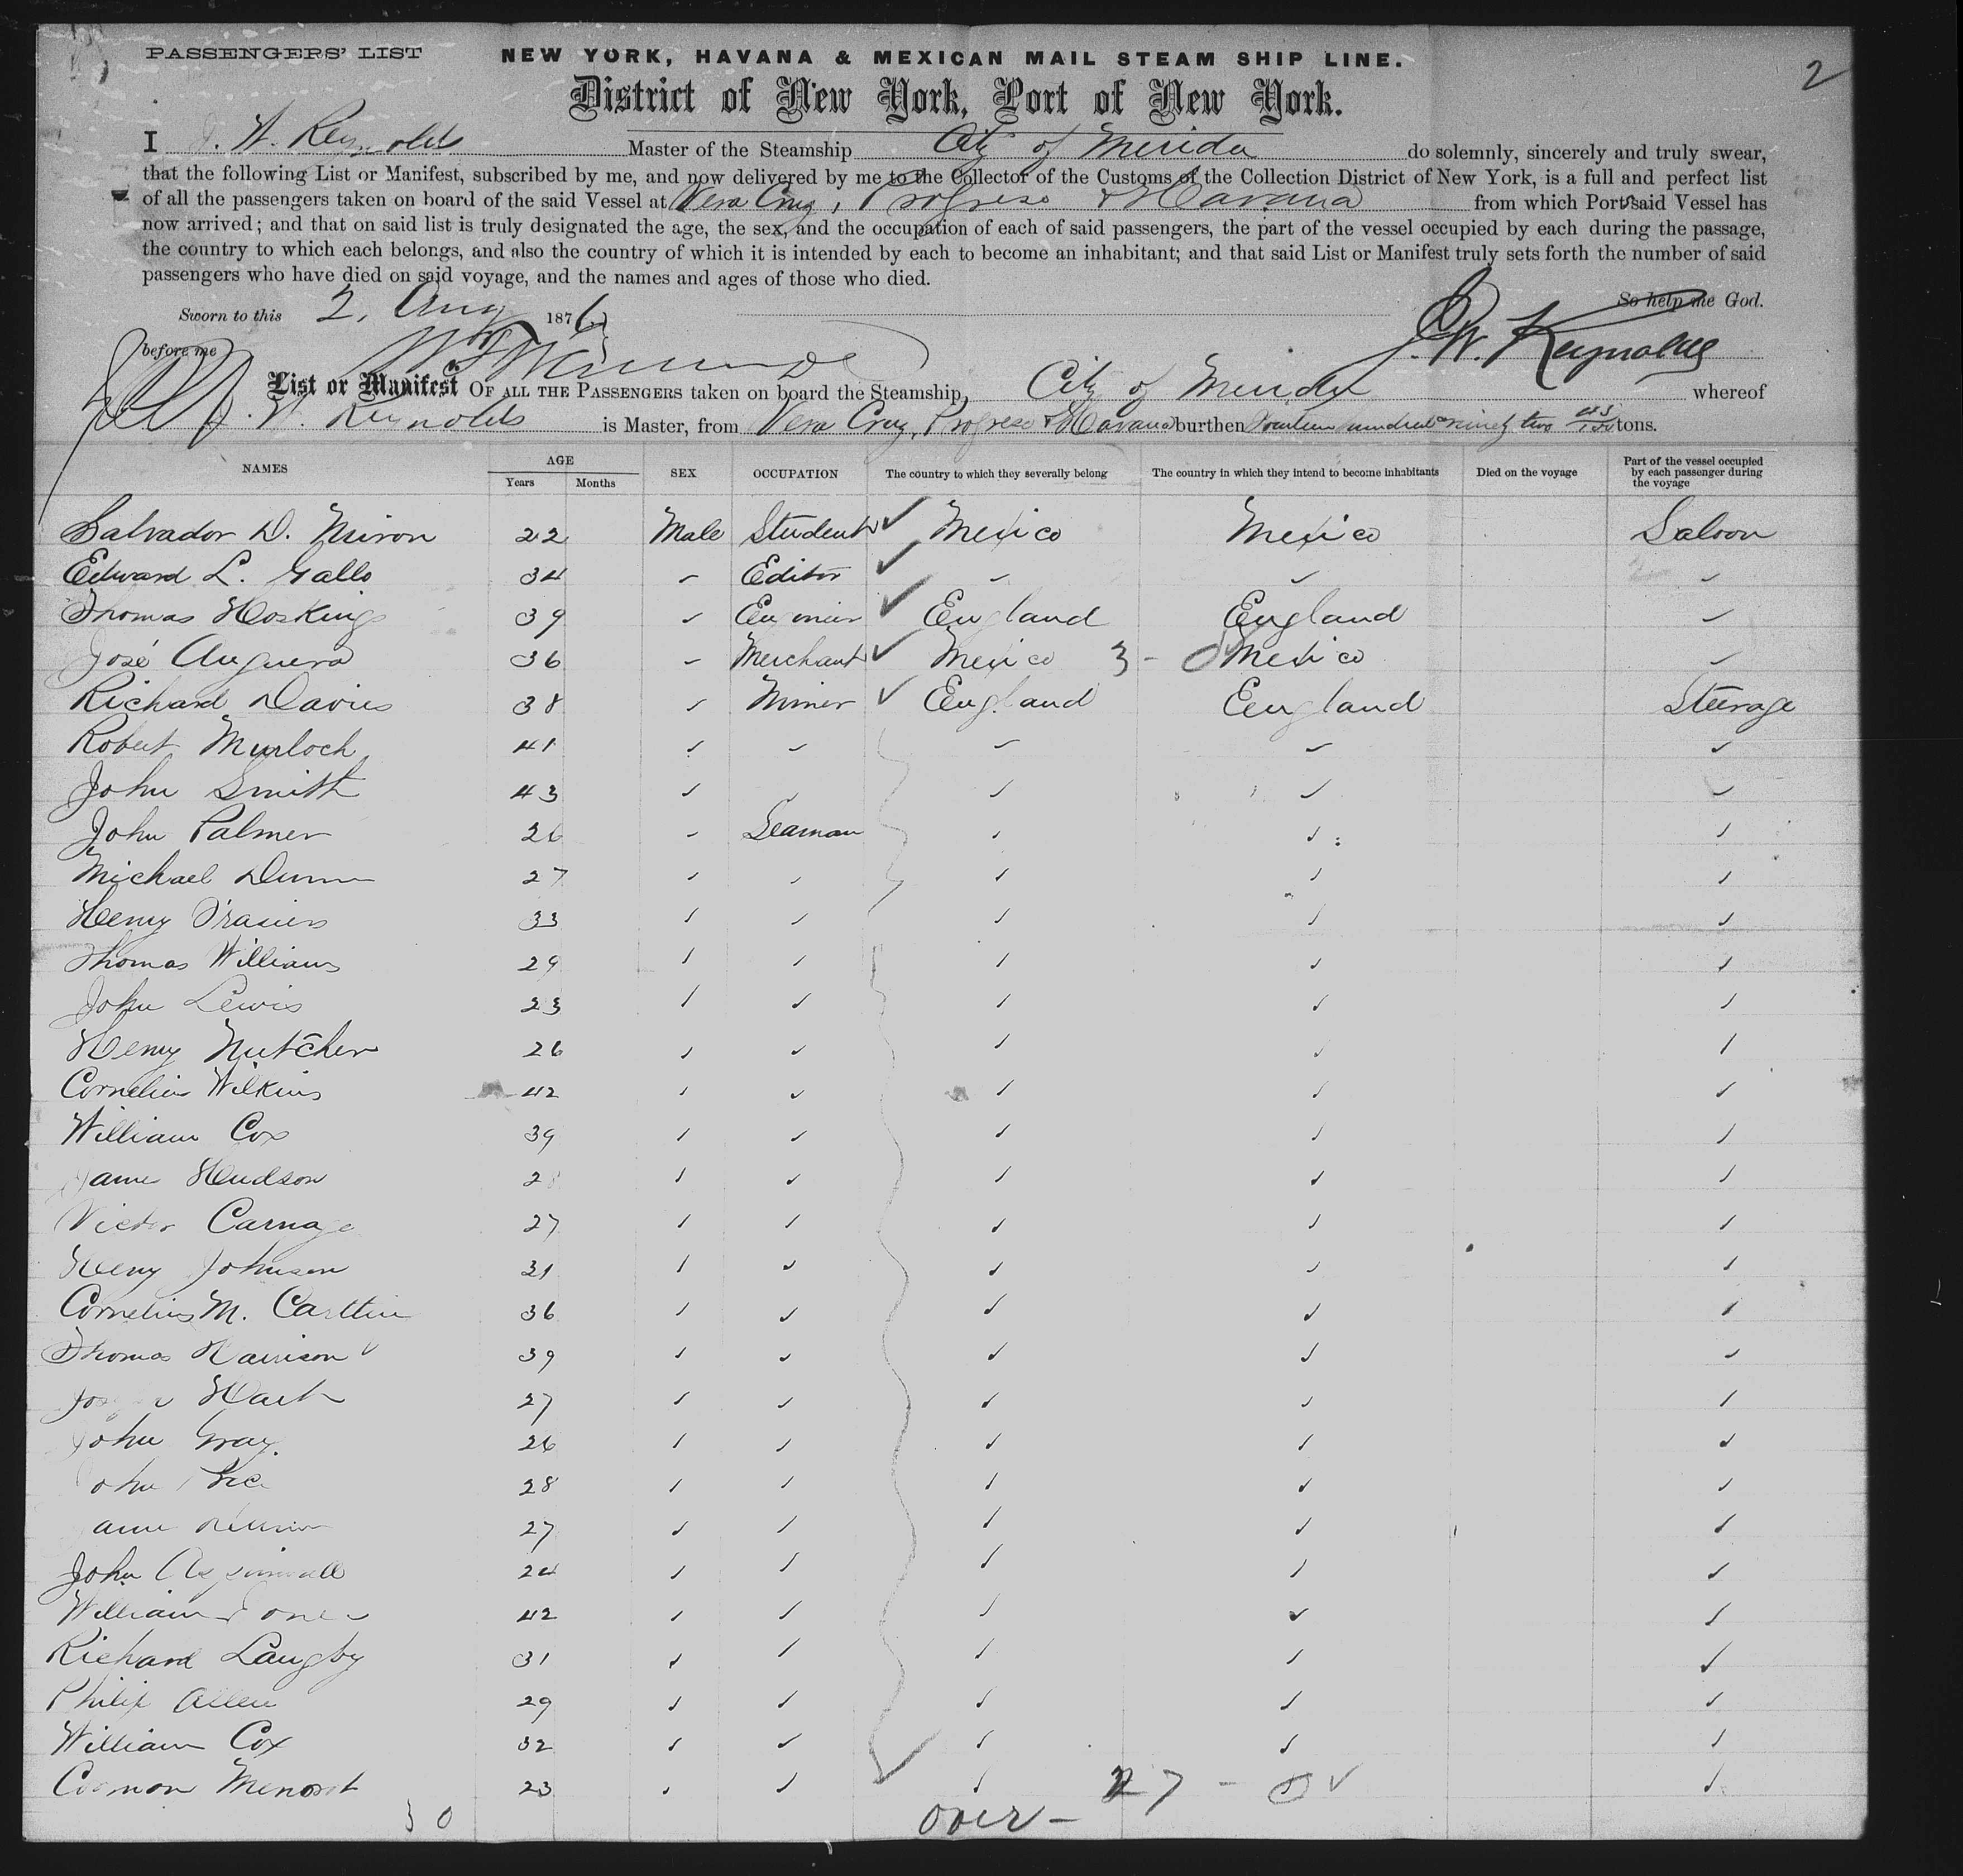 PASSENGERS' LIST NEW YORK, HAVANA & MEXICAN MAIL STEAM SHIP LINE. 2
District of New York, Port of New York.
I J. W. Reynolds Master of the Steamship City of Merida do solemnly, sincerely and truly swear,
that the following List or Manifest, subscribed by me, and now delivered by me to the Collector of the Customs of the Collection District of New York, is a full and perfect list
of all the passengers taken on board of the said Vessel at Vera Cruz, Progreso & Havana from which Ports said Vessel has
now arrived; and that on said list is truly designated the age, the sex, and the occupation of each of said passengers, the part of the vessel occupied by each during the passage,
the country to which each belongs, and also the country of which it is intended by each to become an inhabitant; and that said List or Manifest truly sets forth the number of said
passengers who have died on said voyage, and the names and ages of those who died.
So help me God.
Sworn to this 2, Aug 1876
before me J. W. Reynolds
List or Manifest OF ALL THE PASSENGERS taken on board the Steamship, City of Merida whereof
J. W. Reynolds is Master, from Vera Cruz, Progreso & Havana burthen Fourteen hundred & ninety two tons.
NAMES AGE Years Months SEX OCCUPATION The country to which they severally belong The country in which they intend to become inhabitants Died on the voyage Part of the vessel occupied by each passenger during the voyage
Salvador D. Miron 22 Male Student ✓ Mexico Mexico Saloon
Edward L. Gallo 34 " Editor ✓ " " "
Thomas Hoskings 39 " Engineer ✓ England England "
José Anguera 36 " Merchant ✓ Mexico 3 - Mexico "
Richard Davies 38 " Miner ✓ England England Steerage
Robert Murloch 41 " " " " "
John Smith 43 " " " " "
John Palmer 26 " Seaman " " "
Michael Dunn 27 " " " " "
Henry Frasier 33 " " " " "
Thomas Williams 29 " " " " "
John Lewis 23 " " " " "
Henry Nutcher 26 " " " " "
Cornelius Wilkins 42 " " " " "
William Cox 39 " " " " "
James Hudson 2 " " " " "
Victor Carnage 27 " " " " "
Henry Johnson 31 " " " " "
Cornelius M. Carttin 36 " " " " "
Thomas Harrison 39 " " " " "
Hart 27 " " " " "
John Gray. 26 " " " " "
John 28 " " " " "
27 " " " " "
John Aspinwall 24 " " " " "
William Jones 42 " " " " "
Richard Langby 31 " " " " "
Philip Allen 29 " " " " "
William Cox 32 " " " " "
23 " " " 27 - 0 ✓ " "
30 over -